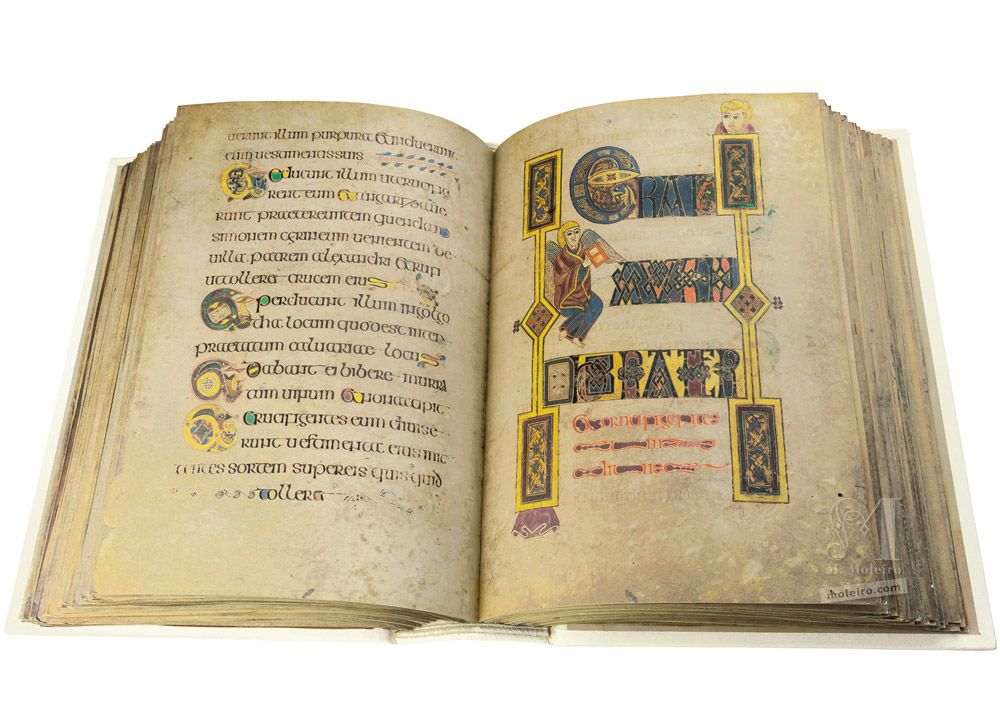 uerunt illum purpura & induerunt
eum uestimentis suis
Educunt illum ut crucifig
erent eum & angarizaue
runt praetereuntem quendam
simonem cirineum uenientem de
uilla patrem alexandri & rufi
ut tolleret crucem eius
Et perducunt illum in golgo
tha locum quod est inter
praetatum caluariae locus
Et dabant ei bibere murra
tum uinum & non accepit
Et crucifigentes eum diuise
runt uestimenta eius mit
tentes sortem super eis quis quid
tolleret
ERAT
AUTEM
M. Moleiro
moleiro.com